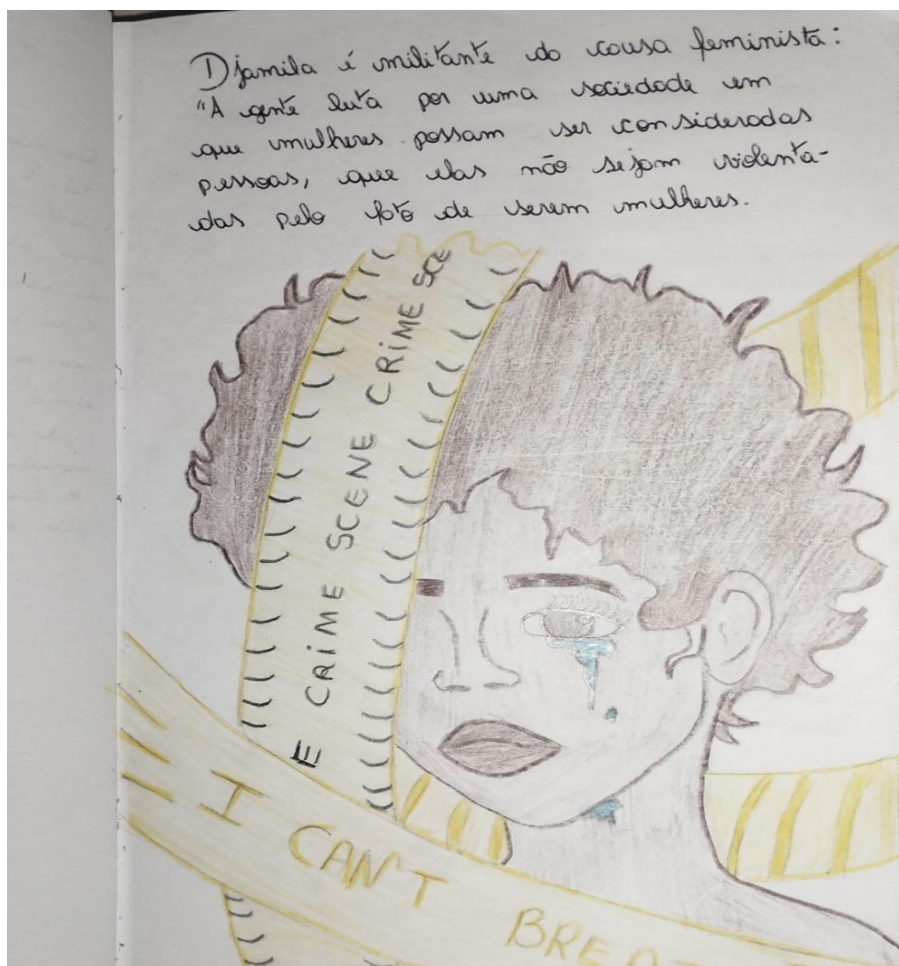 Djamila é militante da causa feminista:
"A gente luta por uma sociedade em
que mulheres possam ser consideradas
pessoas, que elas não sejam violenta-
das pelo fato de serem mulheres.
E CRIME SCENE CRIME SCE
I CAN'T BREA